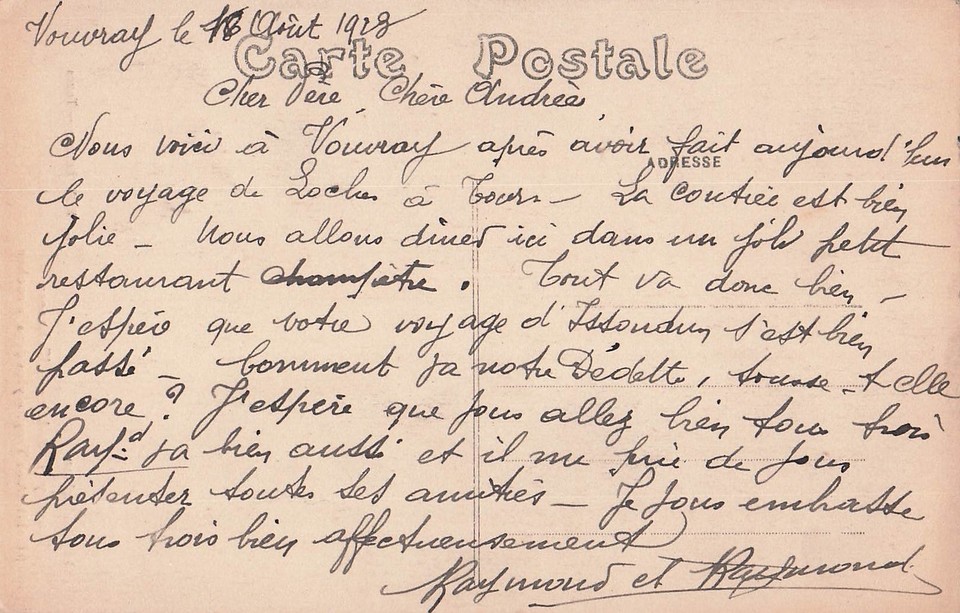 Vouvray le 18 Août 1928
Carte Postale
Cher Père, Chère Andrée
Nous voici à Vouvray après avoir fait aujourd'hui
ADRESSE
le voyage de Loches à Tours - La contrée est bien
jolie - Nous allons dîner ici dans un joli petit
restaurant champêtre. Tout va donc bien -
J'espère que votre voyage d'Issoudun s'est bien
passé - Comment va notre Dédette, tousse-t-elle
encore? J'espère que vous allez bien tous trois
Rayd va bien aussi et il me prie de vous
présenter toutes ses amitiés - Je vous embrasse
tous trois bien affectueusement
Raymond et Raymond